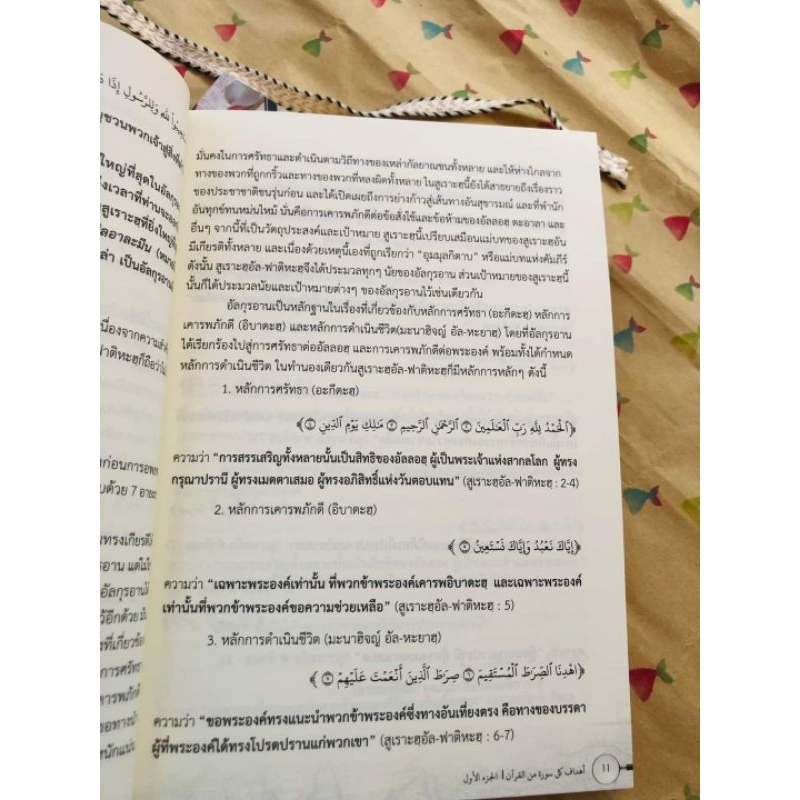 بُواْ لِلَّهِ وَلِلرَّسُولِ إِذَا
ญชวนพวกเจ้าสู่สิ่งที่
ใหญ่ที่สุดในอัลกุร
ังเวลาที่ท่านจะออก
สูเราะฮฺที่ยิ่งใหญ่ที่
ัลอาละมีน (หมาย
ล่า เป็นอัลกุรอาน
นื่องจากความสำ
ฟาติหะฮฺก็ถือว่าไ
ก่อนการอพยพ
บด้วย 7 อายะ
ทรงเกียรติยิ่
ราน แต่ไม่
กุรอานได้
ว้อีกด้วย
ที่เกี่ยวข้อง
มั่นคงในการศรัทธาและดำเนินตามวิถีทางของเหล่ากัลยาณชนทั้งหลาย และให้ห่างไกลจาก
ทางของพวกที่ถูกกริ้วและทางของพวกที่หลงผิดทั้งหลาย ในสูเราะฮฺนี้ยังได้สาธยายถึงเรื่องราว
ของประชาชาติชนรุ่นก่อน และได้เปิดเผยถึงการย่างก้าวสู่เส้นทางอันสุขารมณ์ และที่พำนัก
อันทุกข์ทนหม่นไหม้ นั่นคือการเคารพภักดีต่อข้อสั่งใช้และข้อห้ามของอัลลอฮฺ ตะอาลา และ
อื่นๆ จากนี้ที่เป็นวัตถุประสงค์และเป้าหมาย สูเราะฮฺนี้เปรียบเสมือนแม่บทของสูเราะฮฺอัน
มีเกียรติทั้งหลาย และเนื่องด้วยเหตุนี้เองที่ถูกเรียกว่า “อุมมุลกิตาบ” หรือแม่บทแห่งคัมภีร์
ดังนั้น สูเราะฮฺอัล-ฟาติหะฮฺจึงได้ประมวลทุกๆ นัยของอัลกุรอาน ส่วนเป้าหมายของสูเราะฮฺนี้
นั้นก็ได้ประมวลนัยและเป้าหมายต่างๆ ของอัลกุรอานไว้เช่นเดียวกัน
อัลกุรอานเป็นหลักฐานในเรื่องที่เกี่ยวข้องกับหลักการศรัทธา (อะกีดะฮฺ) หลักการ
เคารพภักดี (อิบาดะฮฺ) และหลักการดำเนินชีวิต(มะนาฮิจญ์ อัล-หะยาฮฺ) โดยที่อัลกุรอาน
ได้เรียกร้องไปสู่การศรัทธาต่ออัลลอฮฺ และการเคารพภักดีต่อพระองค์ พร้อมทั้งได้กำหนด
หลักการดำเนินชีวิต ในทำนองเดียวกันสูเราะฮฺอัล-ฟาติหะฮฺก็มีหลักการหลักๆ ดังนี้
1. หลักการศรัทธา (อะกีดะฮฺ)
﴿ٱلْحَمْدُ لِلَّهِ رَبِّ ٱلْعَٰلَمِينَ ۝ ٱلرَّحْمَٰنِ ٱلرَّحِيمِ ۝ مَٰلِكِ يَوْمِ ٱلدِّينِ ۝﴾
ความว่า “การสรรเสริญทั้งหลายนั้นเป็นสิทธิของอัลลอฮฺ ผู้เป็นพระเจ้าแห่งสากลโลก ผู้ทรง
กรุณาปรานี ผู้ทรงเมตตาเสมอ ผู้ทรงอภิสิทธิ์แห่งวันตอบแทน” (สูเราะฮฺอัล-ฟาติหะฮฺ : 2-4)
2. หลักการเคารพภักดี (อิบาดะฮฺ)
﴿إِيَّاكَ نَعْبُدُ وَإِيَّاكَ نَسْتَعِينُ ۝﴾
ความว่า “เฉพาะพระองค์เท่านั้น ที่พวกข้าพระองค์เคารพอิบาดะฮฺ และเฉพาะพระองค์
เท่านั้นที่พวกข้าพระองค์ขอความช่วยเหลือ” (สูเราะฮฺอัล-ฟาติหะฮฺ : 5)
3. หลักการดำเนินชีวิต (มะนาฮิจญ์ อัล-หะยาฮฺ)
﴿ٱهْدِنَا ٱلصِّرَٰطَ ٱلْمُسْتَقِيمَ ۝ صِرَٰطَ ٱلَّذِينَ أَنْعَمْتَ عَلَيْهِمْ ۝﴾
ความว่า “ขอพระองค์ทรงแนะนำพวกข้าพระองค์ซึ่งทางอันเที่ยงตรง คือทางของบรรดา
ผู้ที่พระองค์ได้ทรงโปรดปรานแก่พวกเขา” (สูเราะฮฺอัล-ฟาติหะฮฺ : 6-7)
أهداف كل سورة من القرآن | الجزء الأول ١١